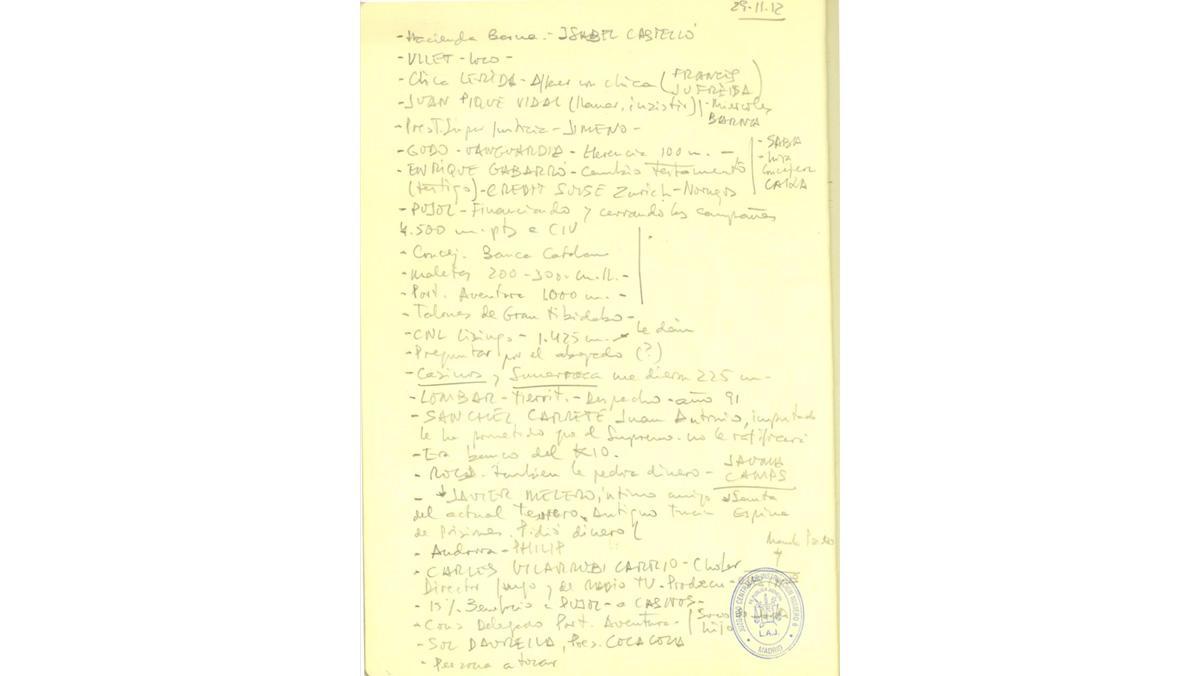 29-11-12
- Hacienda Barna.- ISABEL CASTELLÓ
- VLLET - loco -
- Chica LERIDA - Affaer con chica (FRANCIS JUFRESA)
- JUAN PIQUE VIDAL (llamar, insistir) - Miercoles BARNA
- Prest. Super Justicia - JIMENO -
- GODO - VANGUARDIA - Herencia 100 m. -
- SABIA
- ENRIQUE GABARRÓ - Cambio testamento
(testigo) - CREDIT SUISE Zurich - Noruegos
CAIXA
- PUJOL - Financiando y cerrando las campañas
4.500 m. pts a CIU
- Concej. Banca Catalana
- Maletas 200 - 300 - m. -
- Port. Aventura 1000 m. -
- Talones de Gran Tibidabo -
- CNL Lisings - 1.425 m. - le dan
- Preguntar por el abogado (?)
- Casinos y Sumarroca me dieron 225 m -
- LOMBAR - - Despacho - año 91
- SANCHEZ CARRETE Juan Antonio, imputado
le ha prometido que el Supremo no le ratificará
- Era banco del KIO.
- ROCA. también le pedía dinero - JAUMA CAMPS
- JAVIER MELERO, íntimo amigo Santa
del actual Tesorero. Antiguo Espina
de Prisiones. Pidió dinero
- Andorra - PHILIP
- CARLES VILARRUBI CARRIO - Chofer
Director juego y de Radio TV.
- 15% Beneficio a PUJOL - a CASINOS -
- Cons Delegado Port. Aventura - hijo
- SOL DAURELLA, Pres. COCACOLA
- Persona a tocar
JUZGADO CENTRAL DE INSTRUCCION NUMERO 6
L.A.J.
MADRID